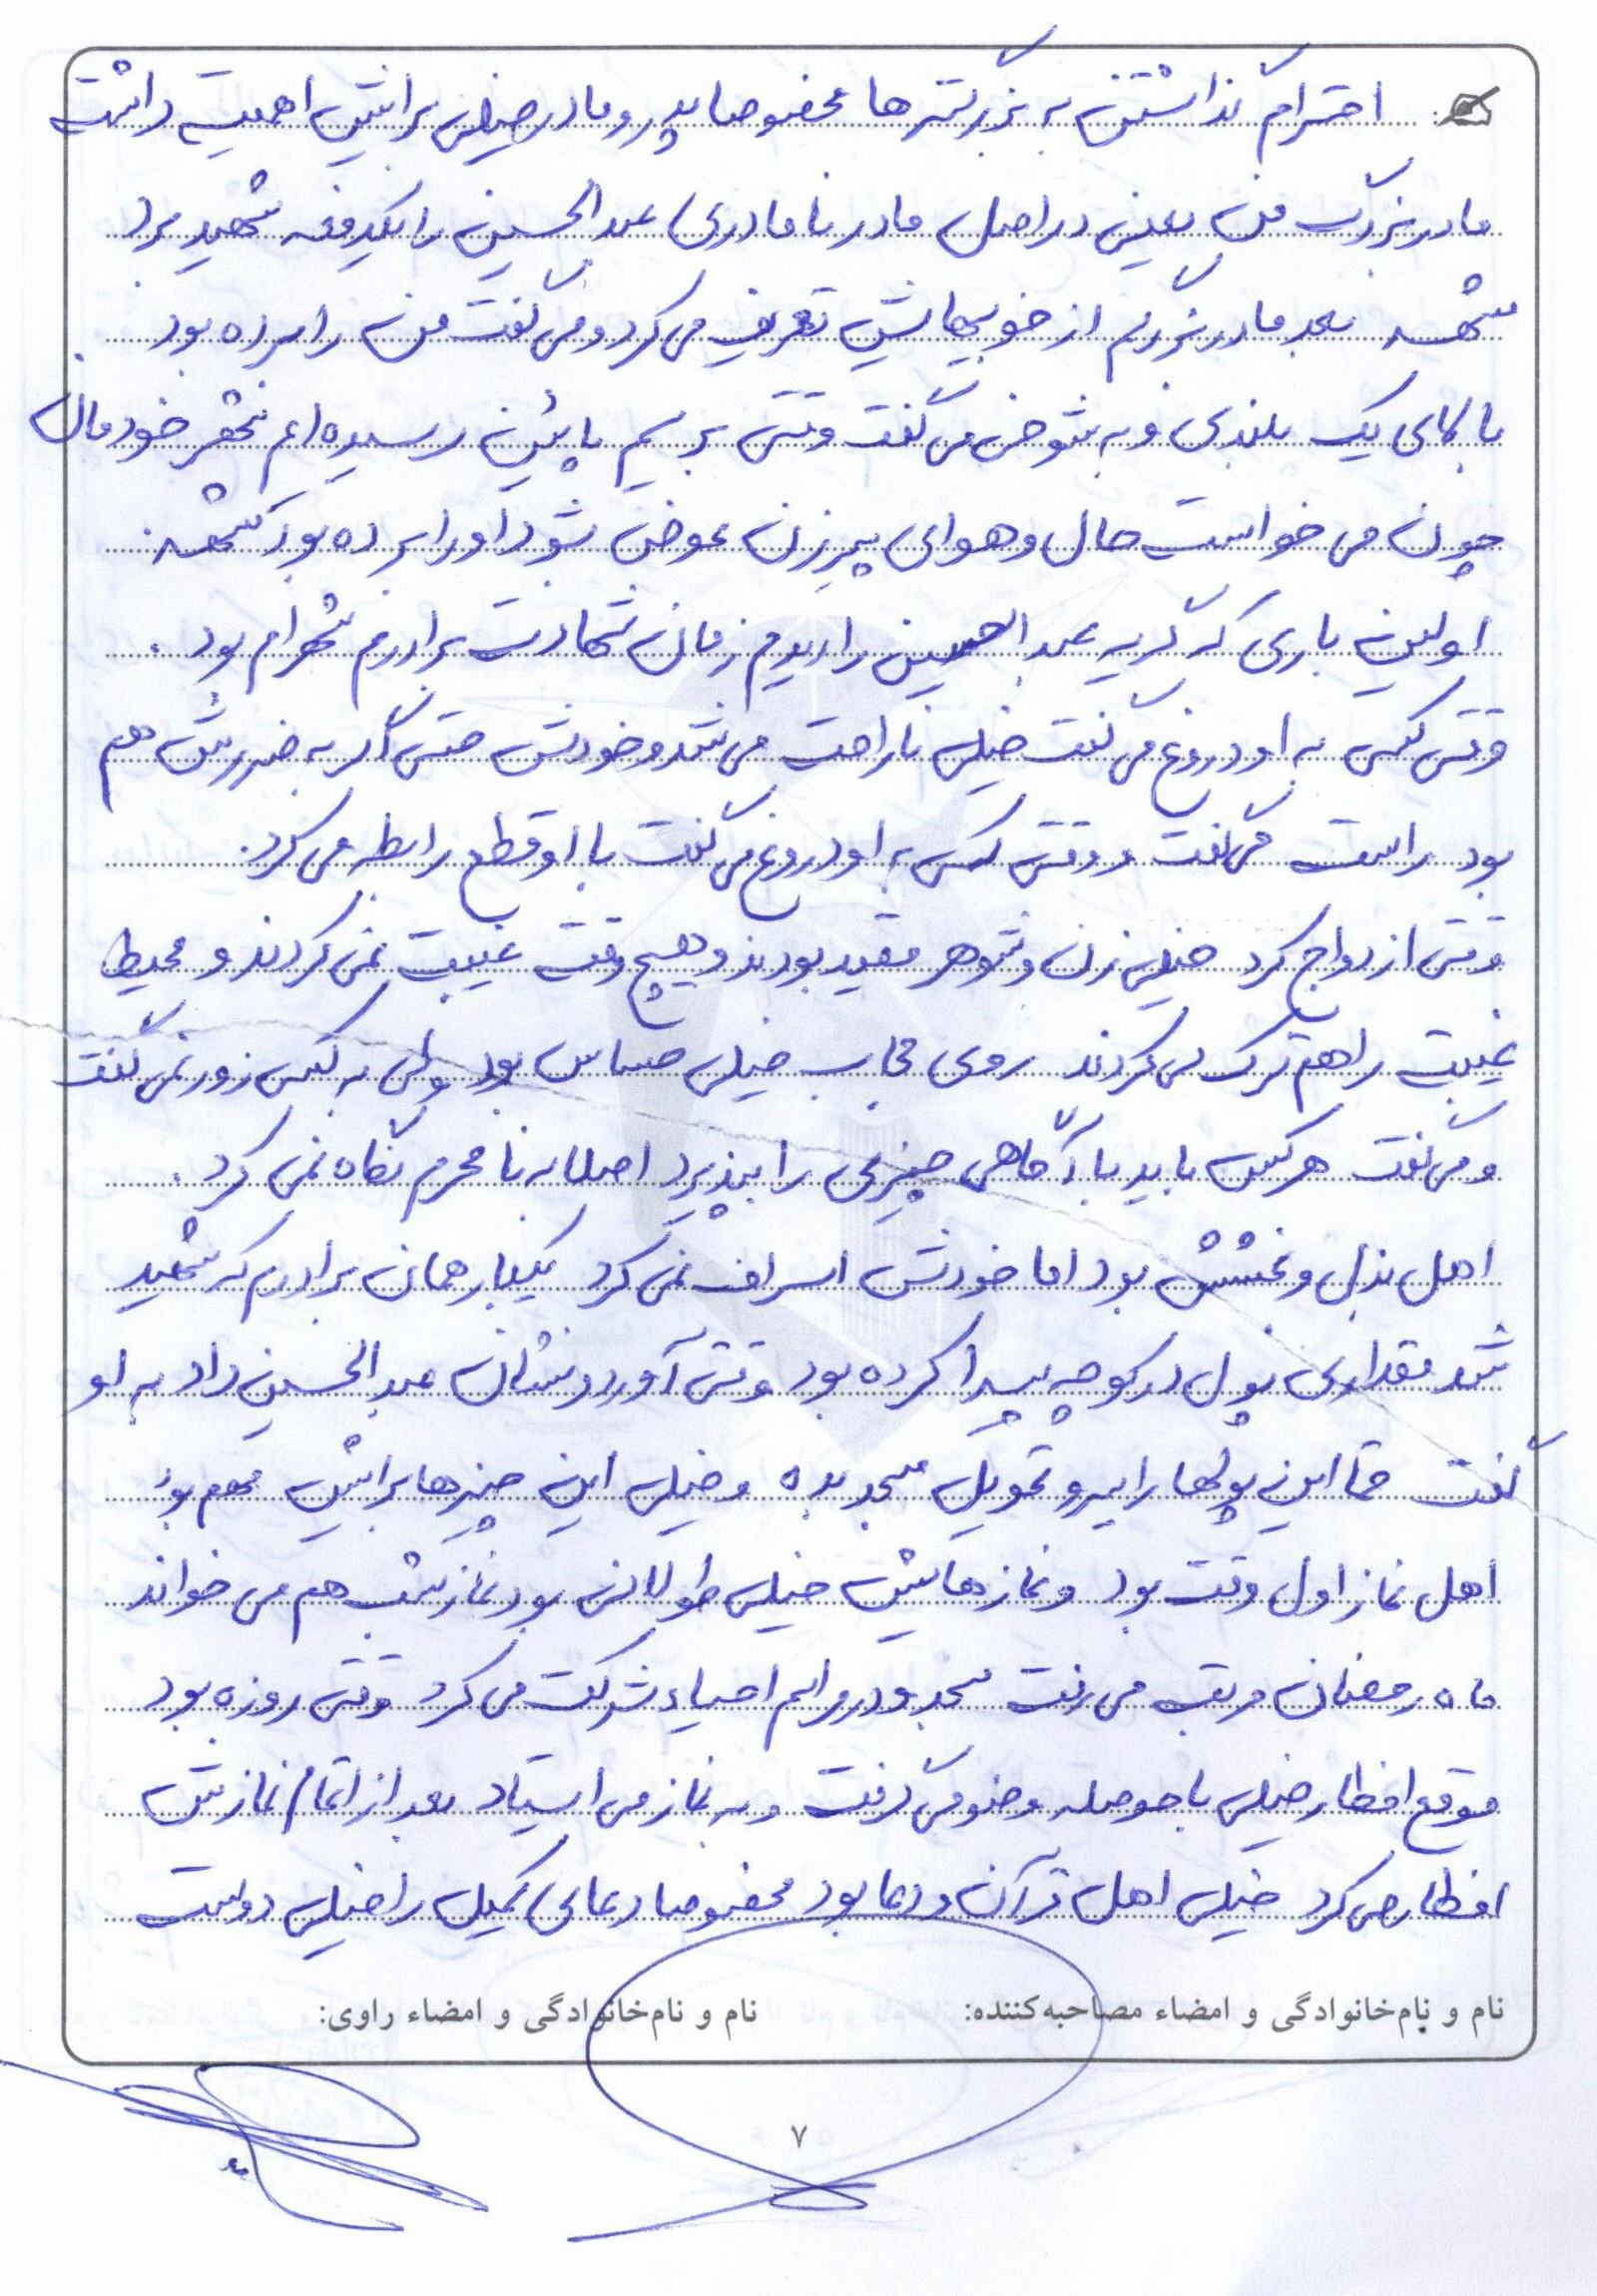 احترام گذاشتن به بزرگترها مخصوصا پدر و مادر خیلی برایش اهمیت داشت
مادربزرگ من یعنی در اصل مادر نامادری عبدالحسین را یکدفعه شهید برد
مشهد بعد مادربزرگم از خوبیهایش تعریف می کرد و می گفت من را برده بود
بالای یک بلندی و به شوخی می گفت وقتی بریم پایین رسیده ایم شهر خودمان
چون می خواست حال و هوای پیرزن عوض شود او را برده بود مشهد.
اولین باری که گریه عبدالحسین را دیدم زمان شهادت برادرم شهرام بود.
وقتی کسی به او دروغ می گفت خیلی ناراحت می شد و خودش حتی اگر به ضررش هم
بود راست می گفت و وقتی کسی به او دروغ می گفت با او قطع رابطه می کرد.
وقتی ازدواج کرد خیلی زن و شوهر مقید بودند و هیچ وقت غیبت نمی کردند و محیط
غیبت را هم ترک می کردند روی حجاب خیلی حساس بود ولی به کسی زور نمی گفت
و می گفت هر کس باید با آگاهی چیزی را بپذیرد اصلا به نامحرم نگاه نمی کرد.
اهل بذل و بخشش بود اما خودش اسراف نمی کرد یکبار همان برادرم که شهید
شد مقداری پول در کوچه پیدا کرده بود وقتی آورد و نشان عبدالحسین داد به او
گفت حتما این پولها را ببر و تحویل مسجد بده و خیلی این چیزها برایش مهم بود
اهل نماز اول وقت بود و نمازهایش خیلی طولانی بود نماز شب هم می خواند
ماه رمضان مرتب می رفت مسجد و در مراسم احیاء شرکت می کرد وقتی روزه بود
موقع افطار خیلی با حوصله وضو می گرفت و به نماز می ایستاد بعد از اتمام نمازش
افطار می کرد خیلی اهل قرآن و دعا بود مخصوصا دعای کمیل را خیلی دوست
نام و نام‌خانوادگی و امضاء مصاحبه‌کننده: نام و نام‌خانوادگی و امضاء راوی:
۷